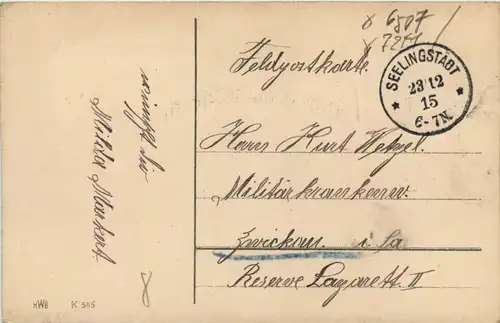 6807
7211
Feldpostkarte.
SEELINGSTADT
23 12
15
6-7N.
Herrn Kurt Wetzel.
Militärkrankenw.
Zwickau i. Sa
Reserve Lazarett II
wünscht die
Milda Markert.
HWB K 585